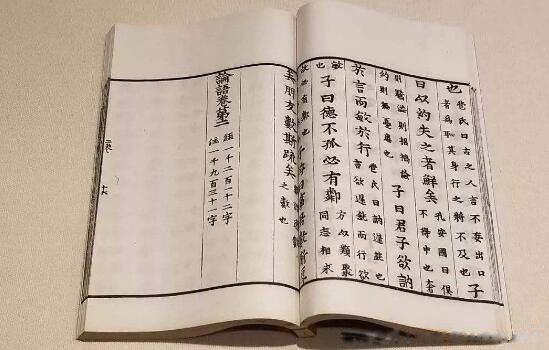 也包氏曰古之人言不妄出口
者爲恥其身行之將不及也子
曰以約失之者鮮矣孔安國曰俱
不得中也奢
則驕溢則招禍儉
約則無憂患也子曰君子欲訥
於言而敏於行包氏曰訥遲鈍也
言欲遲鈍而行欲
敏也子曰德不孤必有鄰方以類聚
同志相求
矣朋友數斯疏矣之數也
論語卷第二
經一千二百一十二字
注一千九百三十一字